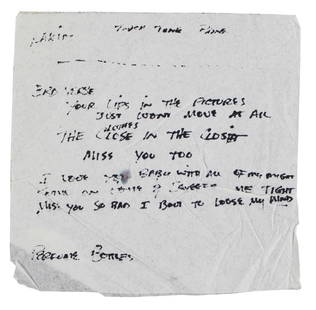 TOUCH TONE PHONE
3RD VERSE
YOUR LIPS IN THE PICTURES
JUST WONT MOVE AT ALL
CLOTHES
THE CLOSE IN THE CLOSIT
MISS YOU TOO
I LOVE YOU BABY WITH ALL OF MY MIGHT
ME TIGHT
MISS YOU SO BAD I BOUT TO LOOSE MY MIND
PERFUME BOTTLES